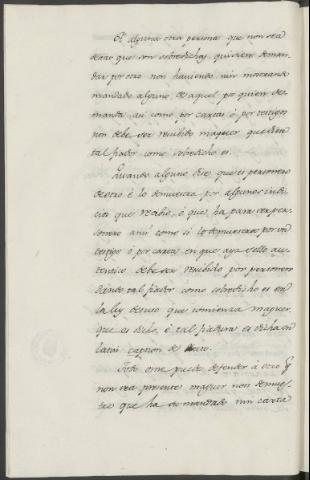 Et alguna otra persona que non sea
destas que son sobredichas, quisiere deman-
dar por otro non haviendo, nin mostrando
mandado alguno, de aquel por quien de-
manda, asi como por cartas ó por testigos
non debe ser recibido maguer que dien
tal fiador como sobredicho es.
Quando alguno dice que es personero
de otro é lo demuestra por algunos indi-
cios que recibió, ó que ha para ser per-
sonero ansi como si lo demuestra por un
testigo ó por carta en que aya sello au-
tentico debe ser recibido por personero
dando tal fiador como sobredicho es en
la ley desuso que comienza maguer
que es dicho, é tal fiadura es dicha en
latin caption de
Tod ome puede defender á otro q
non sea presente maguer non demues-
tre que ha su mandado nin carta